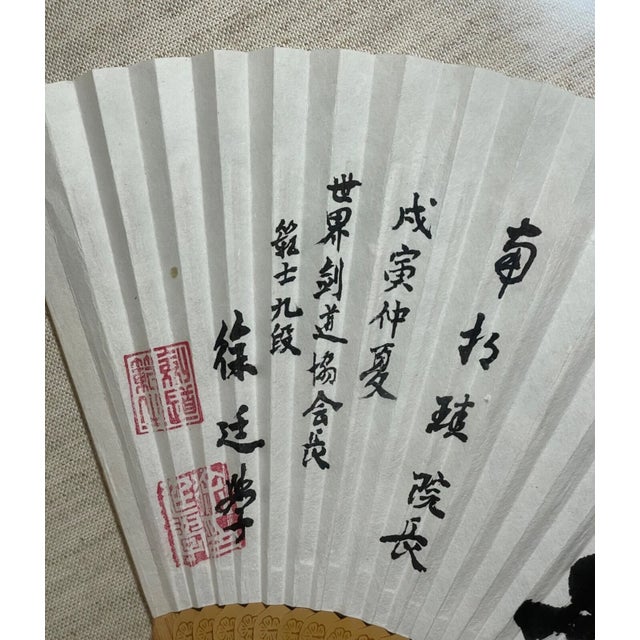 南相院長
戊寅仲夏
世界剑道協会長
範士九段
徐廷學
剣道
範士